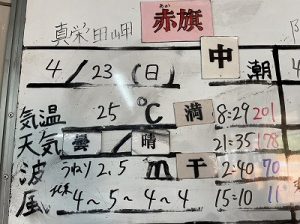 真栄田岬 赤旗
あか
4/23(日) 中潮
気温 25℃ 満 8:29 201
天気 曇/晴 21:35 178
波 うねり 2.5m 干 2:40 70
風 北東 4~5~4~4 15:10 11